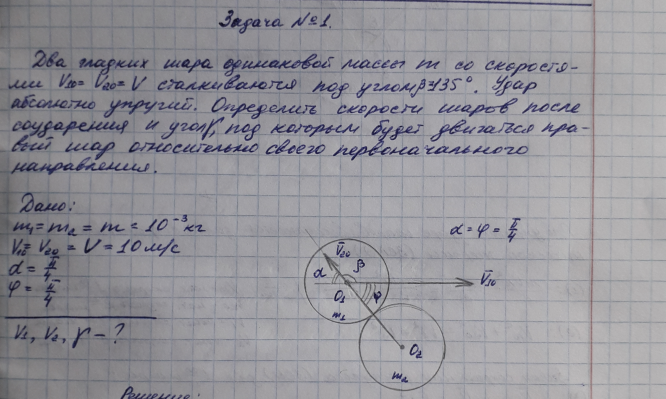 Задача №1.
Два гладких шара одинаковой массы m со скоростя-
ми V₁₀ = V₂₀ = V сталкиваются под углом β=135°. Удар
абсолютно упругий. Определить скорости шаров после
соударения и угол γ, под которым будет двигаться пра-
вый шар относительно своего первоначального
направления.
Дано:
m₁ = m₂ = m = 10⁻³ кг
V₁₀ = V₂₀ = V = 10 м/с
α = π/4
φ = π/4
V₁, V₂, γ - ?
α = φ = π/4
V̄₂₀
α β
V̄₁₀
O₁ φ
m₁
O₂
m₂
Решение: